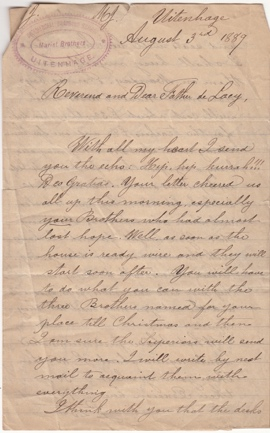 Uitenhage
August 3rd 1889
Marist Brothers
UITENHAGE
Reverend and Dear Father de Lacy,
With all my heart I send
you the echo: Hep, hep, hurrah!!!
Deo Gratias. Your letter cheered us
all up this morning, especially
your Brothers who had almost
lost hope. Well, as soon as the
house is ready wire and they will
start soon after. You will have
to do what you can with the
three Brothers named for your
place till Christmas and then
I am sure the Superiors will send
you more. I will write by next
mail to acquaint them with
everything.
I think with you that the desks